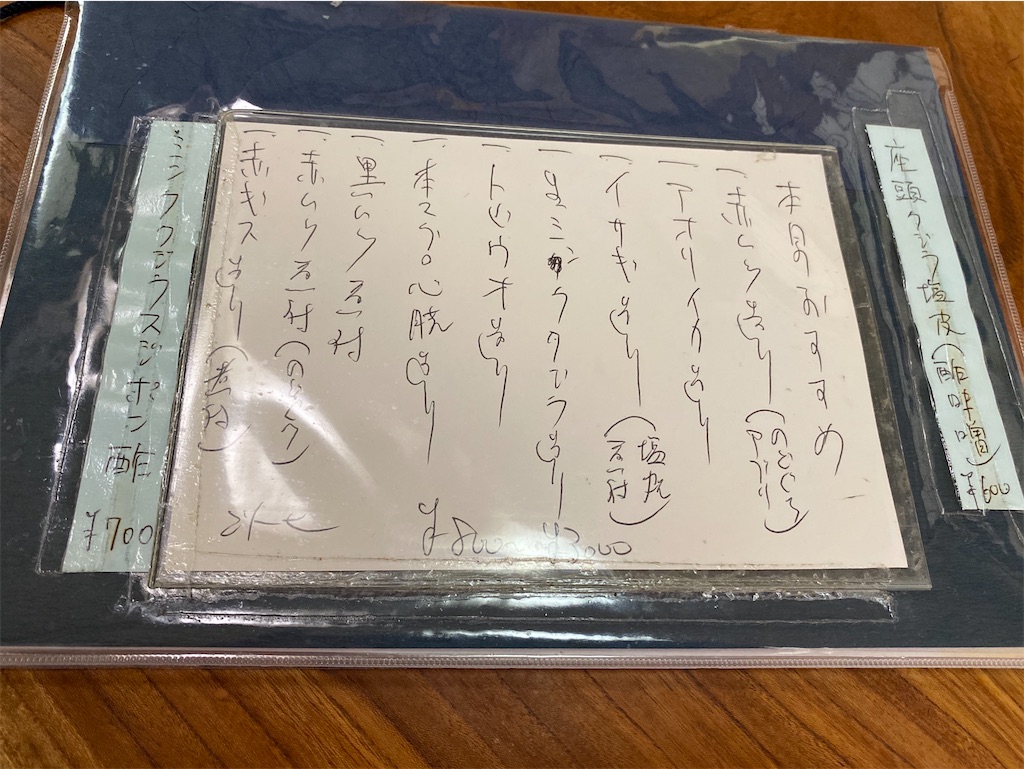 座頭クジラ塩皮(酢味噌)
¥600
本日のおすすめ
一 赤ムツ造り(のどぐろアブリ)
一 アオリイカ造り
一 イサキ造り(塩焼 煮付)
一 生ミンククジラ造り ¥3000
一 トビウオ造り
一 本マグロ心臓造り ¥800
一 黒ムツ煮付
一 赤ムツ煮付(のどぐろ)
一 赤キス造り
ミンククジラスジポン酢
¥700